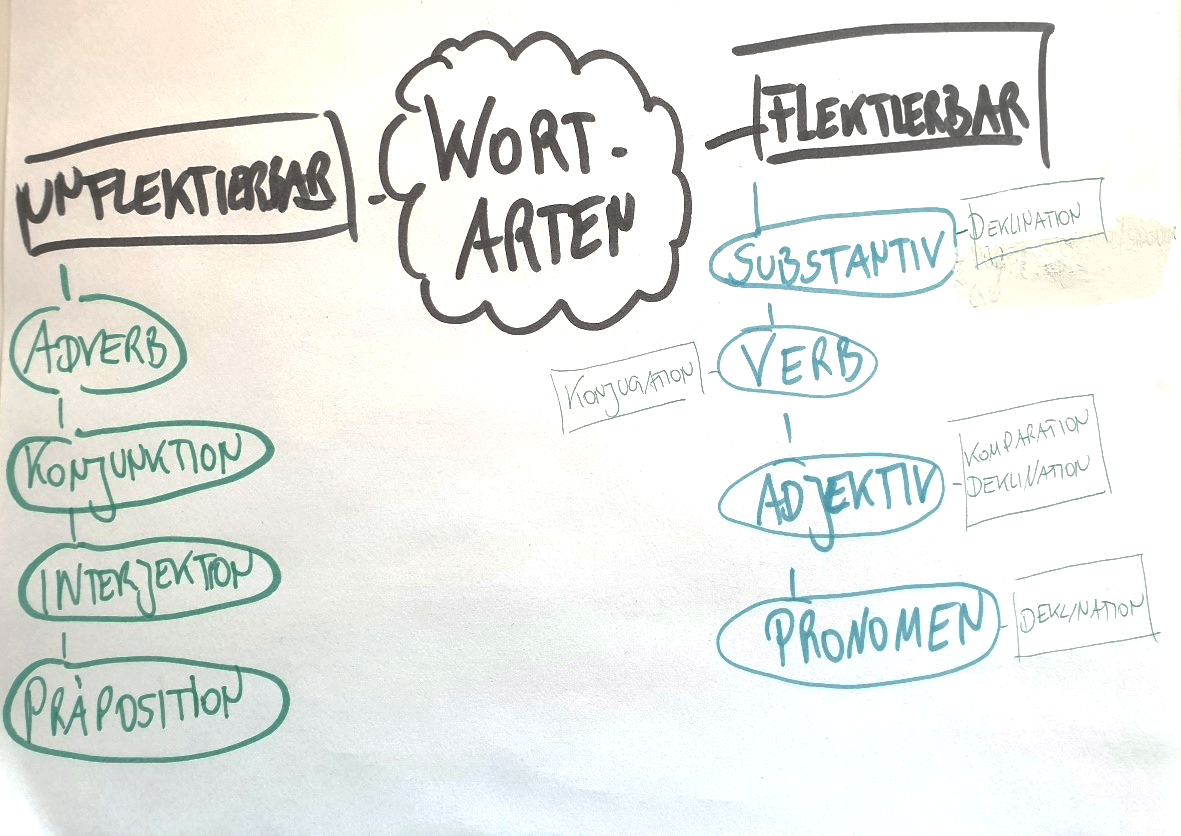 WORT-
ARTEN
UNFLEKTIERBAR
ADVERB
KONJUNKTION
INTERJEKTION
PRÄPOSITION
FLEKTIERBAR
SUBSTANTIV
DEKLINATION
VERB
KONJUGATION
ADJEKTIV
KOMPARATION
DEKLINATION
PRONOMEN
DEKLINATION